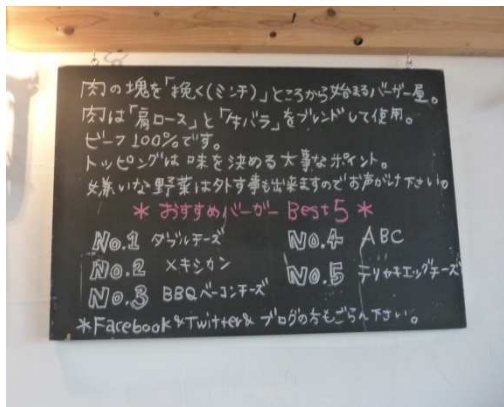 肉の塊を「挽く(ミンチ)」ところから始まるバーガー屋。
肉は「肩ロース」と「牛バラ」をブレンドして使用。
ビーフ100%です。
トッピングは味を決める大事なポイント。
嫌いな野菜は外す事も出来ますのでお声がけ下さい。
* おすすめバーガー Best 5 *
No.1 ダブルチーズ
No.2 メキシカン
No.3 BBQベーコンチーズ
No.4 ABC
No.5 テリヤキエッグチーズ
*Facebook&Twitter&ブログの方もごらん下さい。